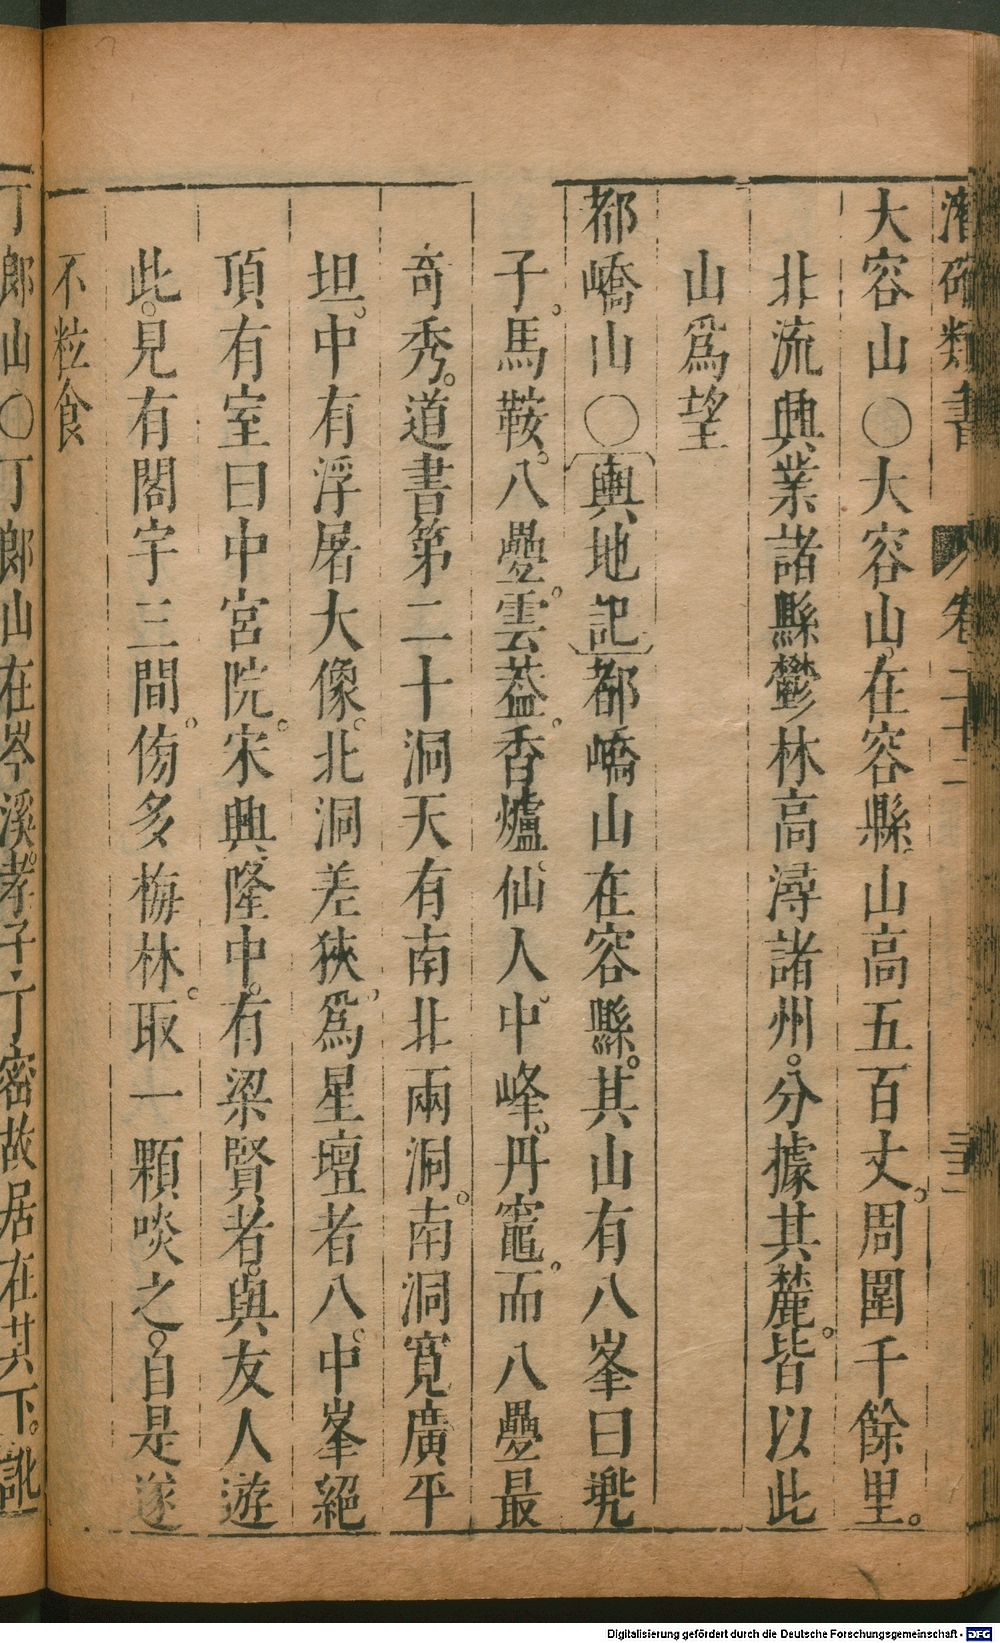 潛確類書
卷二十二
三二
大容山○大容山在容縣山高五百丈。周圍千餘里。
北流興業諸縣鬱林高潯諸州。分據其麓。皆以此
山爲望
都嶠山○輿地記都嶠山在容縣。其山有八峯曰兠
子。馬鞍。八疊。雲葢。香爐。仙人。中峰。丹竈。而八疊最
奇秀。道書第二十洞天有南北兩洞。南洞寛廣平
坦。中有浮屠大像。北洞差狹。爲星壇者八。中峯絕
頂有室曰中宮院。宋興隆中。有梁賢者。與友人遊
此。見有閣宇三間。傍多梅林。取一顆啖之。自是遂
不粒食
丁郎山○丁郎山在岑溪。孝子丁密故居在其下。訛
Digitalisierung gefördert durch die Deutsche Forschungsgemeinschaft - DFG